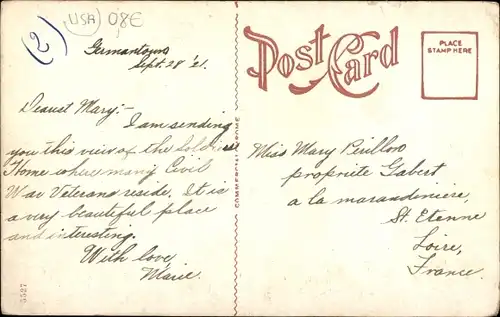 (2)
USA 08E
Germantown
Sept. 28 '21.
Dearest Mary:-
I am sending
you this view of the Soldiers
Home where many Civil
War Veterans reside. It is
a very beautiful place
and interesting.
With love,
Marie.
3527
POST CARD
PLACE
STAMP HERE
Miss Mary
propriete Gabert
a la marandiniere,
St. Etenne
Loire,
France.